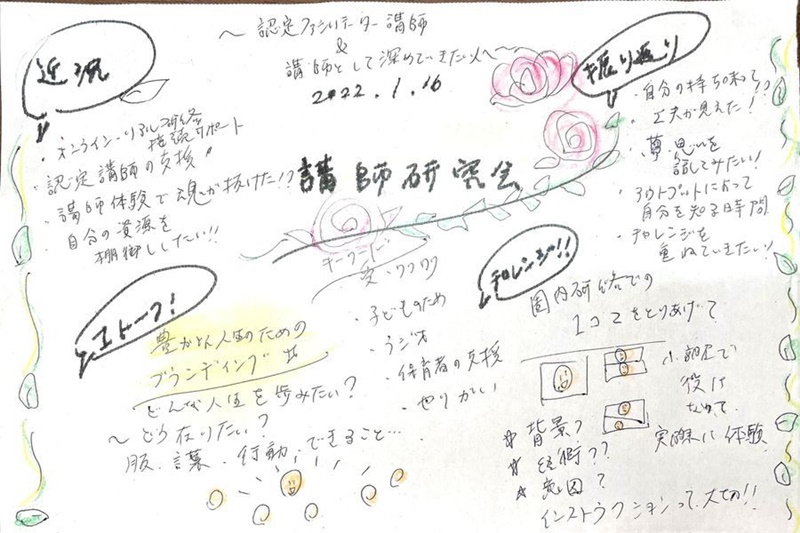 〜認定ファシリテーター講師
&
講師として深めていきたい人へ〜
2022.1.16
近況
・オンライン・リアル研修
接続サポート
・認定講師の支援
・講師体験で魂が抜けた!?
・自分の資源を
棚卸ししたい!!
講師研究会
振り返り
・自分の持ち味って??
・工夫が見えた!
・尊い思いを
話してみたい!
・アウトプットによって
自分を知る時間
・チャレンジを
重ねていきたい!
キーワード
愛・ワクワク
・子どものため
・ラジオ
・保育者の支援
・やりがい
1トーク!
豊かな人生のための
ブランディング
どんな人生を歩みたい?
〜どう在りたい?
服、言葉、行動、できること…
チャレンジ!!
園内研修での
1コマをとりあげて
小部屋で
役に
なって
実際に体験
背景?
技術??
意図?
インストラクションって大切!!